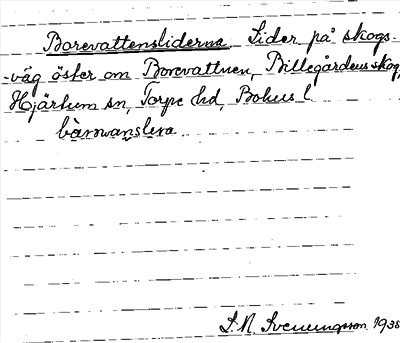 Borevattensliderna. Lider på skogs-
väg öster om Borevattnen, Billegårdens skog,
Hjärtum sn, Torpe hd, Bohus l.
S. N. Svenungsson 1938